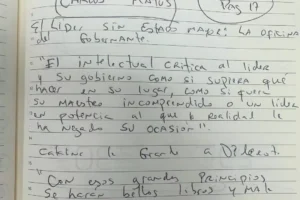 Carlos Matus
Pag 17
El Lider sin Estado Mayor: La oficina
del Gobernante.
"El intelectual critica al lider
y su gobierno como si supiera que
hacer en su lugar, como si fuera
su maestro incomprendido o un lider
en potencia al que la realidad le
ha negado su ocasión".
Catalina la Grande a Diderot.
"Con esos grandes Principios
Se harán bellos libros y mala